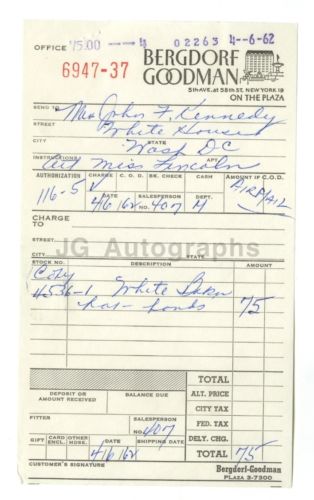 OFFICE 75.00 — 4 02263 4--6-62
6947-37
BERGDORF
GOODMAN
5th AVE. at 58th ST., NEW YORK 19
ON THE PLAZA
SEND TO Mrs John F. Kennedy
STREET White House
CITY STATE Wash DC
INSTRUCTIONS Att Miss Lincoln
AUTHORIZATION CHARGE C. O. D. BK. CHECK CASH AMOUNT IF C.O.D.
116-5 AIRMAIL
DATE SALESPERSON DEPT.
4/6/62 407 M
CHARGE TO
JG Autographs
STREET
CITY STATE
STOCK NO. DESCRIPTION AMOUNT
4536-1 White
hat 75
TOTAL
DEPOSIT OR AMOUNT RECEIVED BALANCE DUE ALT. PRICE
CITY TAX
FITTER SALESPERSON FED. TAX
No 407
GIFT CARD ENCL. OTHER MDSE. DATE SHIPPING DATE DELY. CHG.
4/6/62 TOTAL 75
CUSTOMER'S SIGNATURE Bergdorf-Goodman
PLAZA 3-7300